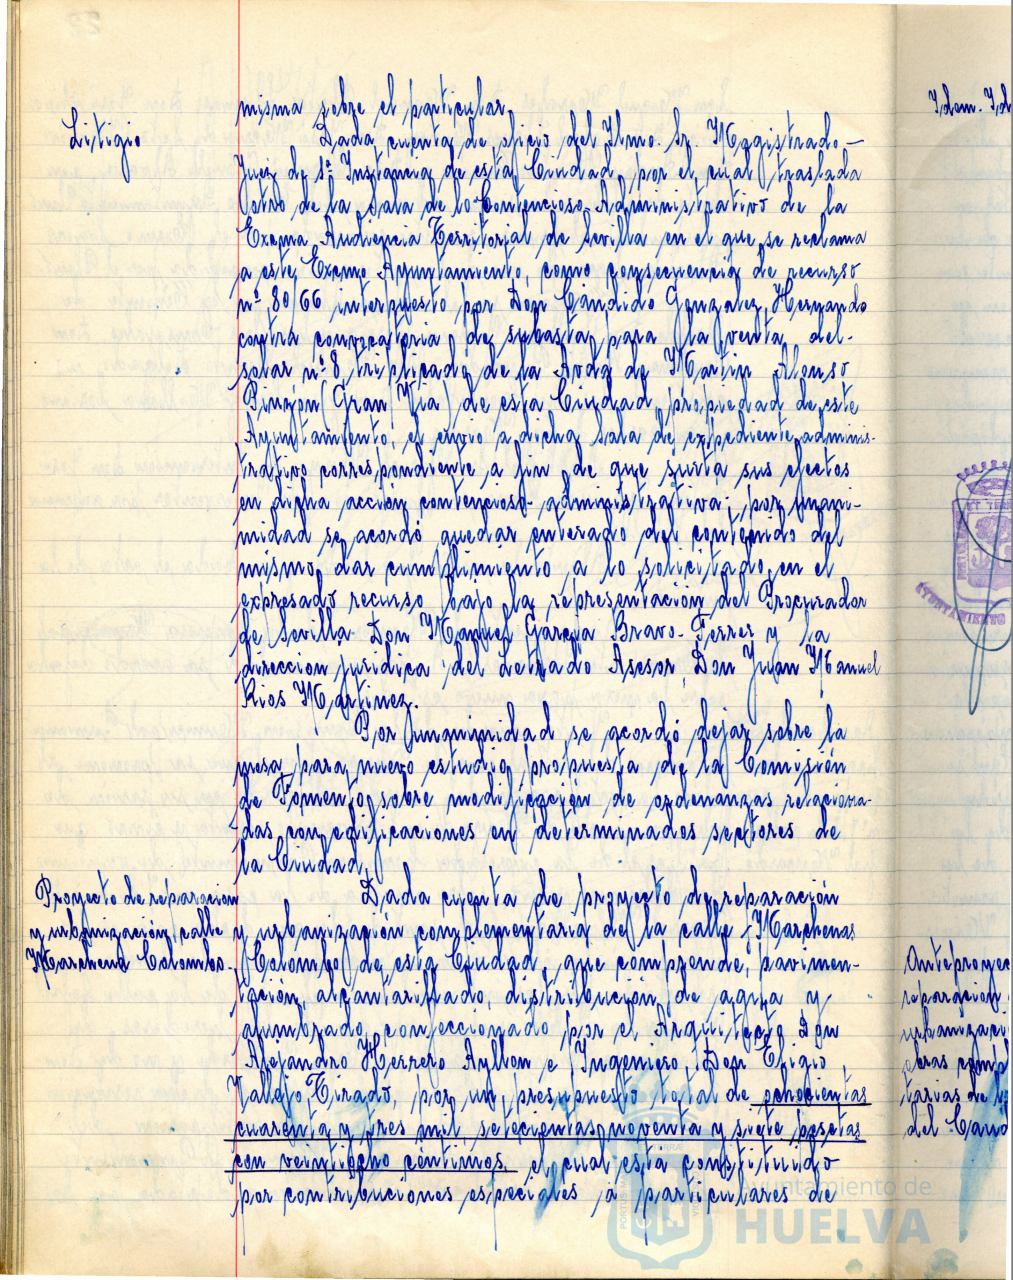 misma sobre el particular.
Litigio
Dada cuenta de oficio del Ilmo. Sr. Magistrado-
Juez de 1ª Instancia de esta Ciudad, por el cual traslada
otro de la Sala de lo Contencioso-Administrativo de la
Excma Audiencia Territorial de Sevilla en el que se reclama
a este Excmo Ayuntamiento, como consecuencia de recurso
nº 80/66 interpuesto por Don Cándido Gonzalez Hernando
contra convocatoria de subasta para la venta del
solar nº 8 triplicado de la Avda de Martin Alonso
Pinzón (Gran Vía) de esta Ciudad, propiedad de este
Ayuntamiento, el envío a dicha Sala de expediente adminis-
trativo correspondiente a fin de que surta sus efectos
en dicha acción contencioso-administrativa; por unani-
midad se acordó quedar enterado del contenido del
mismo, dar cumplimiento a lo solicitado en el
expresado recurso bajo la representación del Procurador
de Sevilla Don Manuel García Bravo-Ferrer y la
direccion jurídica del Letrado Asesor, Don Juan Manuel
Rios Martinez.
Por unanimidad se acordó dejar sobre la
mesa, para nuevo estudio, propuesta de la Comisión
de Fomento sobre modificación de ordenanzas relaciona-
das con edificaciones en determinados sectores de
la Ciudad.
Proyecto de reparacion
y urbanización calle
Marchena Colombo.
Dada cuenta de proyecto de reparación
y urbanización complementaria de la calle Marchena
Colombo de esta Ciudad, que comprende, pavimen-
tación, alcantarillado, distribución de agua y
alumbrado, confeccionado por el Arquitecto Don
Alejandro Herrero Ayllon e Ingeniero, Don Eligio
Vallejo Tirado, por un presupuesto total de ochocientas
cuarenta y tres mil, setecientas noventa y siete pesetas
con veintiocho céntimos. el cual esta constituido
por contribuciones especiales a particulares de
Idem. Id
Anteproyec
reparacion
urbanizaci
obras comp
tarias de
del Cand
AYUNTAMIENTO
Ayuntamiento de
HUELVA